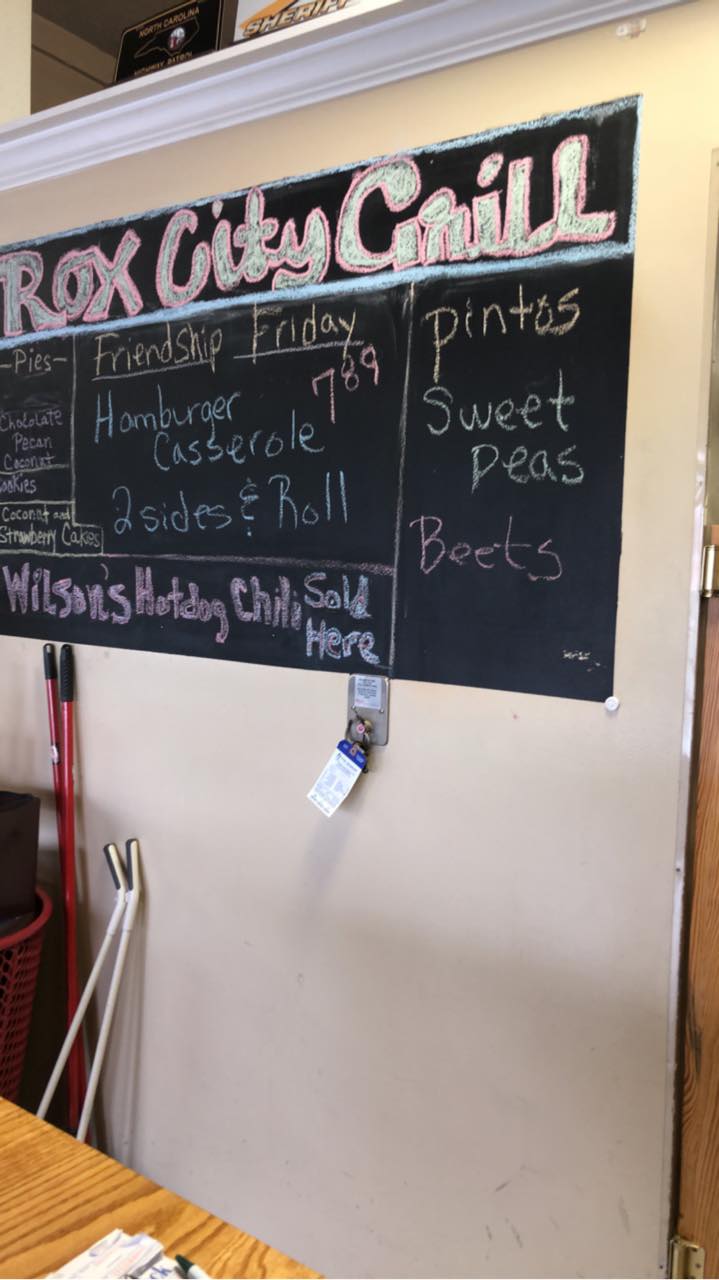 NORTH CAROLINA
HIGHWAY PATROL
SHERIFF
Rox City Grill
-Pies-
Chocolate
Pecan
Coconut
Cookies
Coconut and
Strawberry Cakes
Friendship Friday
7 89
Hamburger
Casserole
2 sides & Roll
Pintos
Sweet
Peas
Beets
Wilson's Hotdog Chili Sold
Here